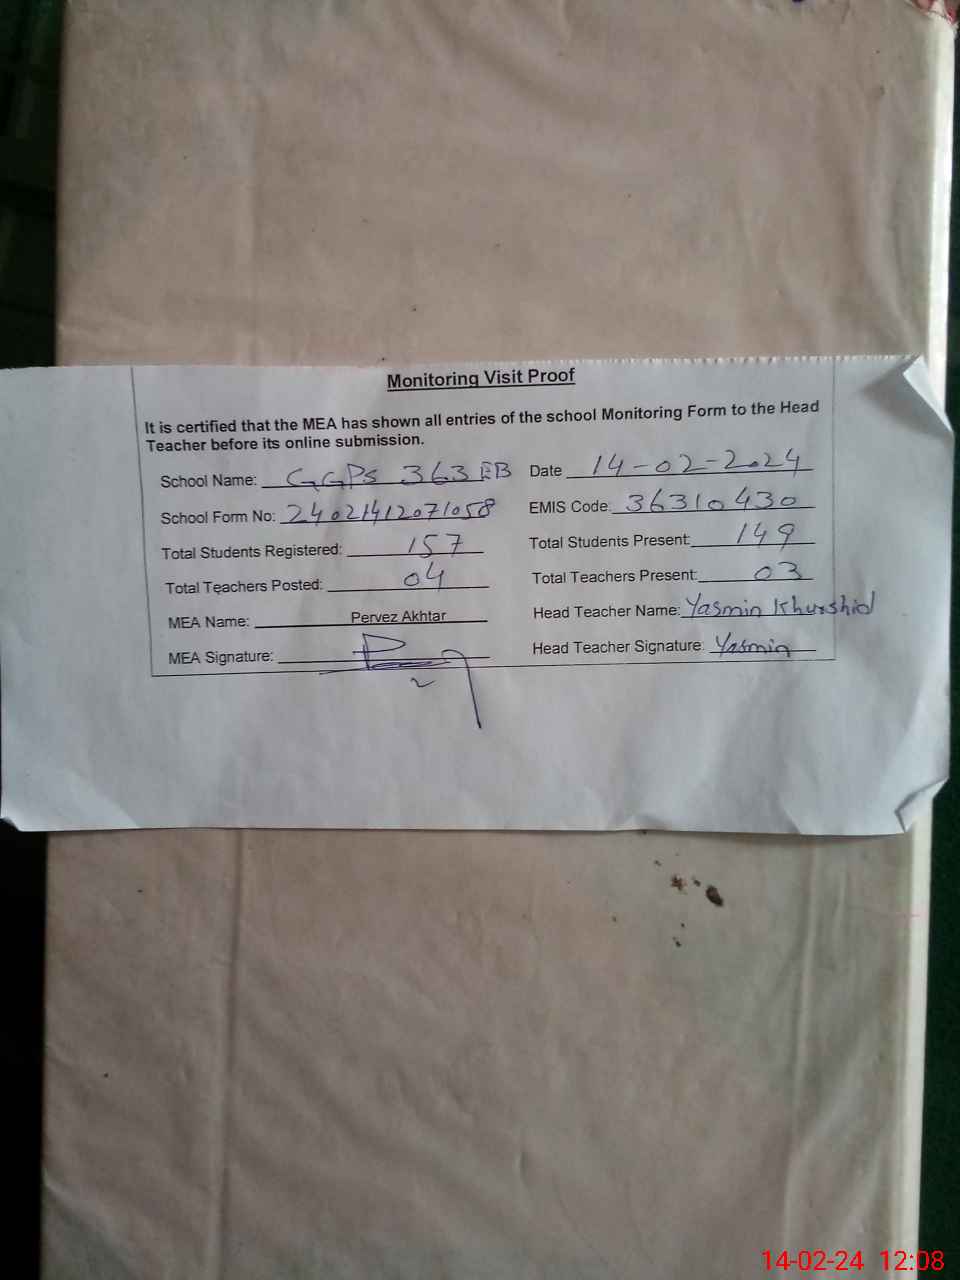 Monitoring Visit Proof
It is certified that the MEA has shown all entries of the school Monitoring Form to the Head
Teacher before its online submission.
School Name: GGPS 363 EB Date 14-02-2024
School Form No: 24021412071058 EMIS Code: 36310430
Total Students Registered: 157 Total Students Present: 149
Total Teachers Posted: 04 Total Teachers Present: 03
MEA Name: Pervez Akhtar Head Teacher Name: Yasmin Khurshid
MEA Signature: Head Teacher Signature: Yasmin
14-02-24 12:08